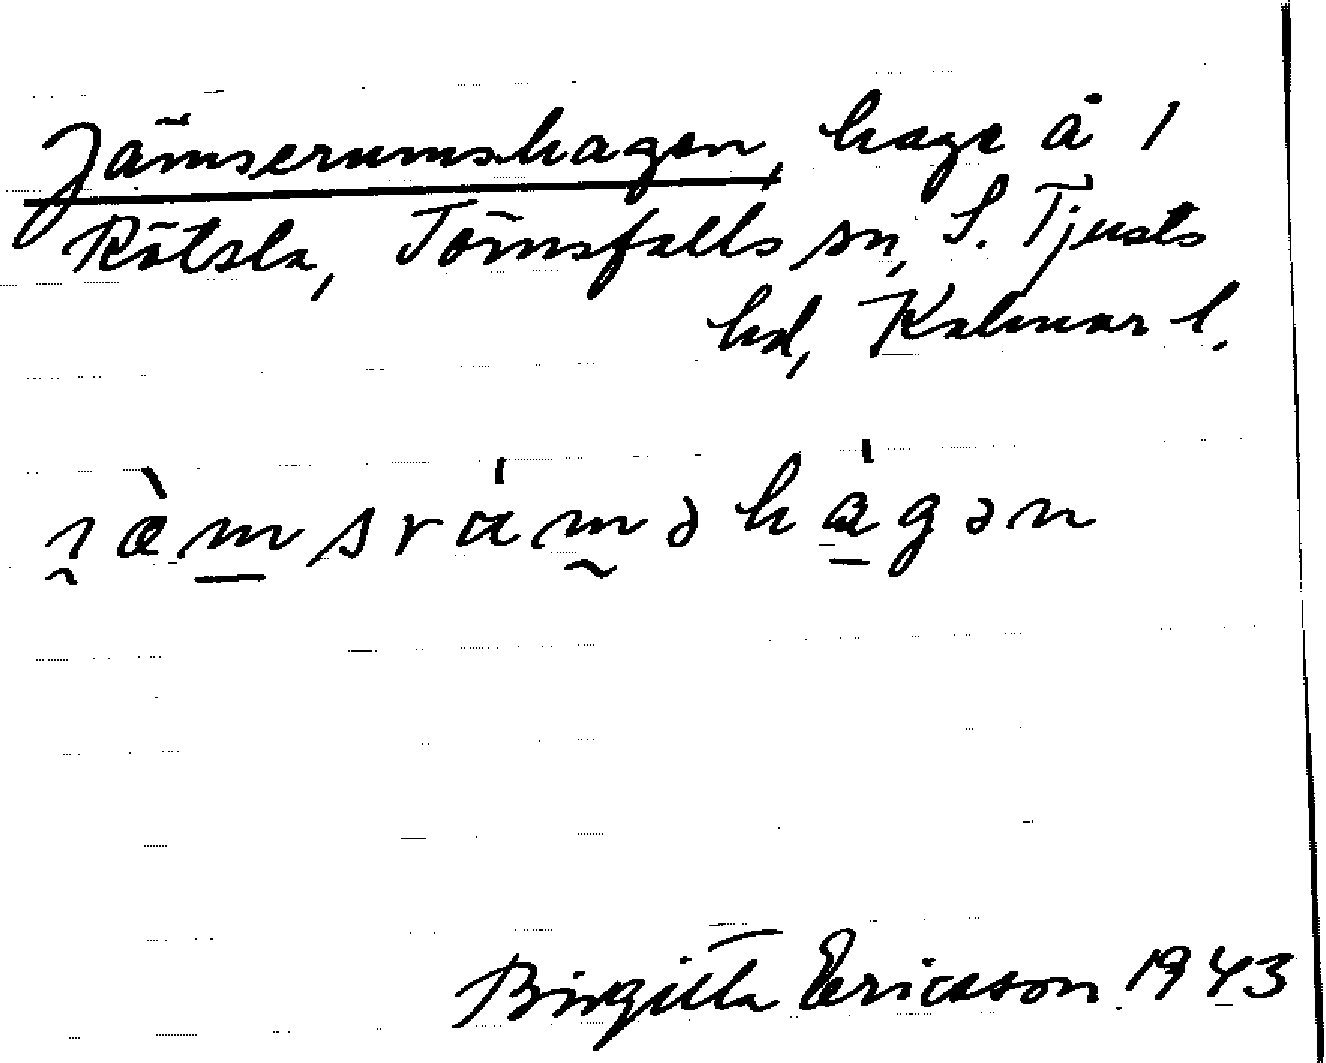 Jämserumshagen, hage å 1
Rötsla, Törnsfalls sn, S. Tjusts
hd, Kalmar l.
Birgitta Ericsson 1943